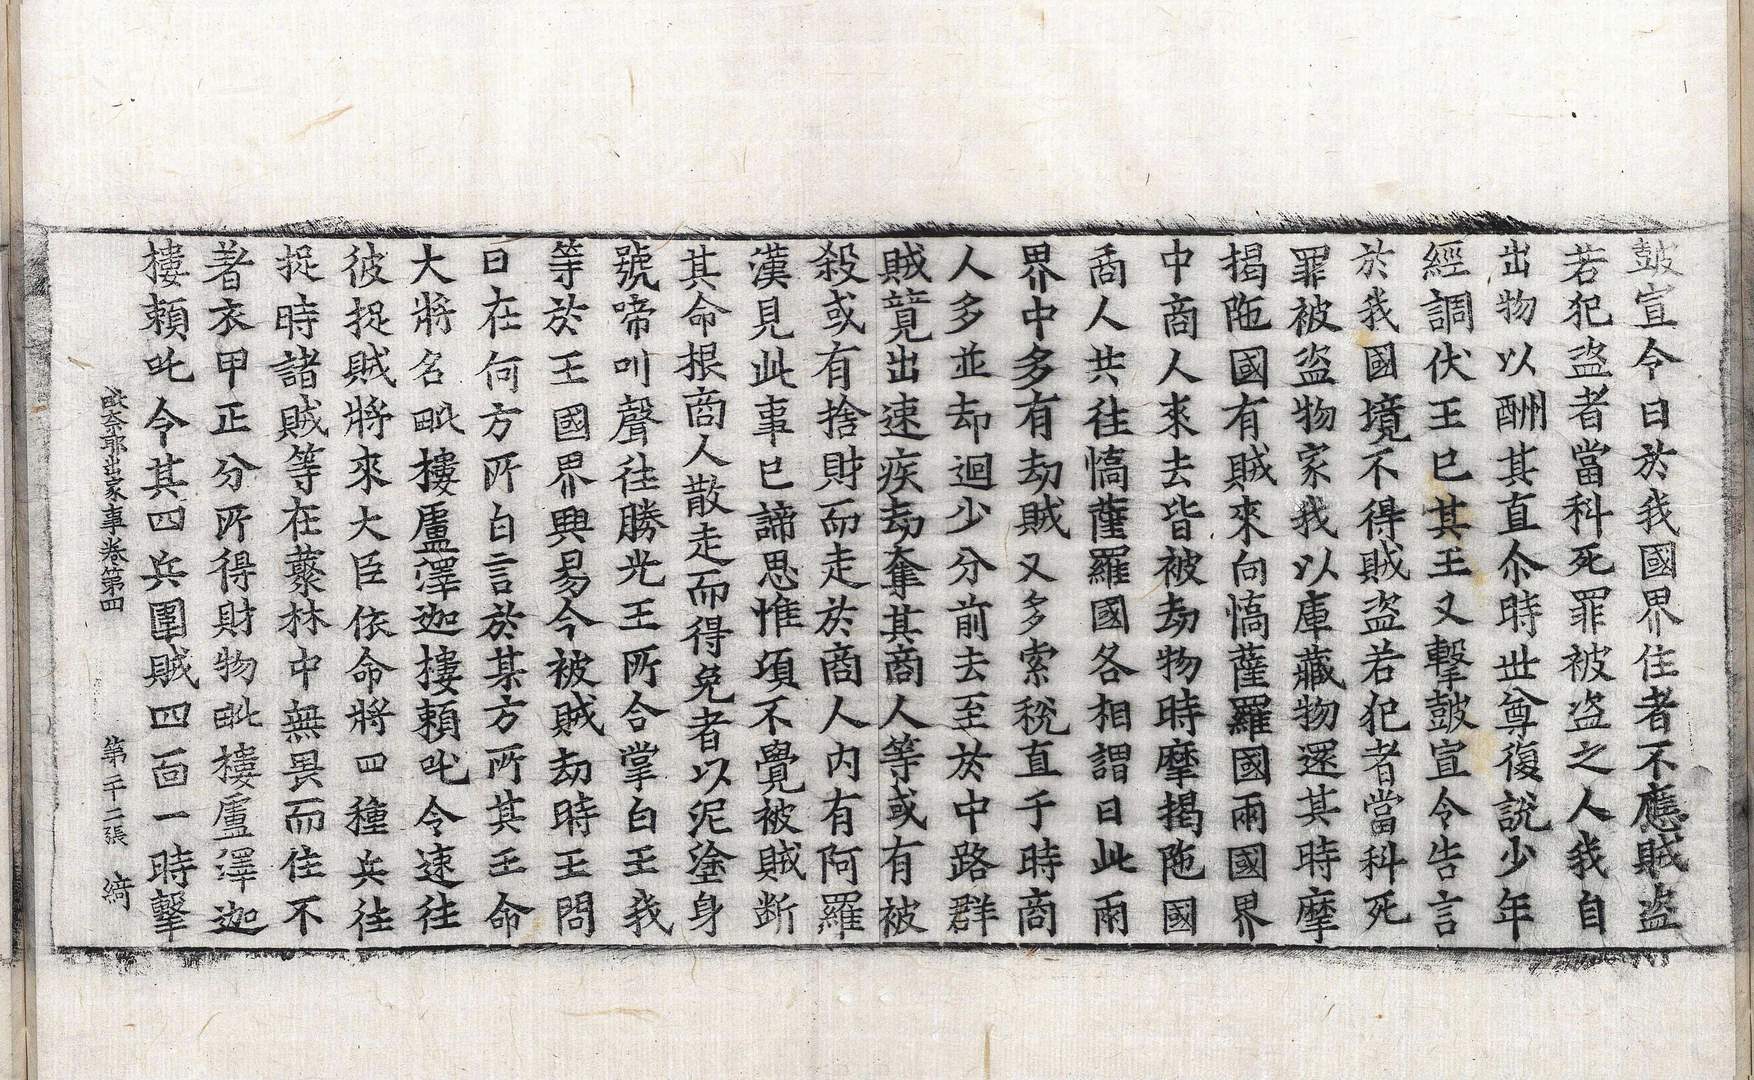 皷宣令曰於我國界住者不應賊盜
若犯盜者當科死罪被盜之人我自
出物以酬其直尒時世尊復說少年
經調伏王已其王又擊皷宣令告言
於我國境不得賊盜若犯者當科死
罪被盜物家我以庫藏物還其時摩
揭陁國有賊來向憍薩羅國兩國界
中商人來去皆被劫物時摩揭陁國
啇人共往憍薩羅國各相謂曰此兩
界中多有劫賊又多索稅直于時商
人多並却迴少分前去至於中路群
賊竟出速疾劫奪其商人等或有被
殺或有捨財而走於商人内有阿羅
漢見此事已諦思惟頃不覺被賊断
其命根商人散走而得免者以泥塗身
號啼叫聲往勝光王所合掌白王我
等於王國界興易今被賊劫時王問
曰在何方所白言於某方所其王命
大將名毗樓盧澤迦樓賴叱令速往
彼捉賊將來大臣依命將四種兵往
捉時諸賊等在藂林中無畏而住不
著衣甲正分所得財物毗樓盧澤迦
樓賴叱令其四兵圍賊四面一時擊
毗奈耶出家事卷第四 第十二張 綺